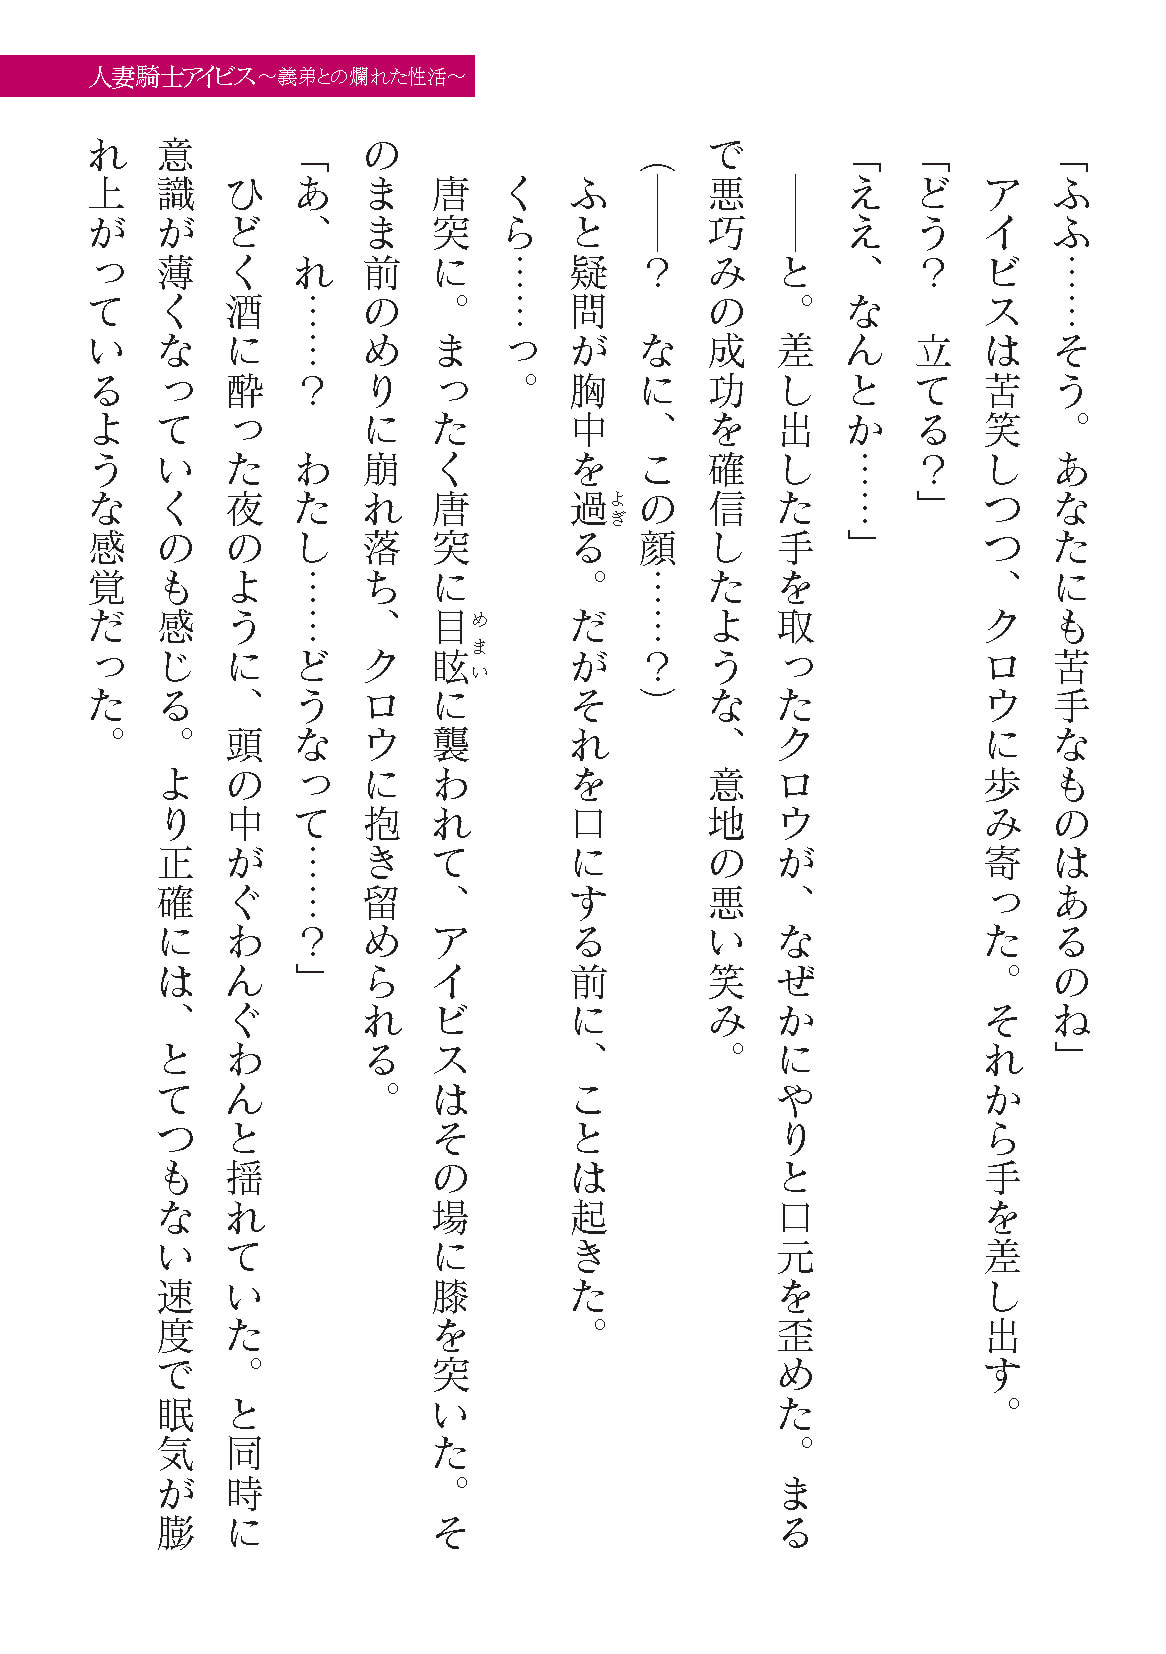 人妻騎士アイビス～義弟との爛れた性活～
「ふふ……そう。あなたにも苦手なものはあるのね」
　アイビスは苦笑しつつ、クロウに歩み寄った。それから手を差し出す。
「どう？　立てる？」
「ええ、なんとか……」
　――と。差し出した手を取ったクロウが、なぜかにやりと口元を歪めた。まる
で悪巧みの成功を確信したような、意地の悪い笑み。
（――？　なに、この顔……？）
　ふと疑問が胸中を過る。だがそれを口にする前に、ことは起きた。
よぎ
　くら……っ。
　唐突に。まったく唐突に目眩に襲われて、アイビスはその場に膝を突いた。そ
めまい
のまま前のめりに崩れ落ち、クロウに抱き留められる。
「あ、れ……？　わたし……どうなって……？」
　ひどく酒に酔った夜のように、頭の中がぐわんぐわんと揺れていた。と同時に
意識が薄くなっていくのも感じる。より正確には、とてつもない速度で眠気が膨
れ上がっているような感覚だった。